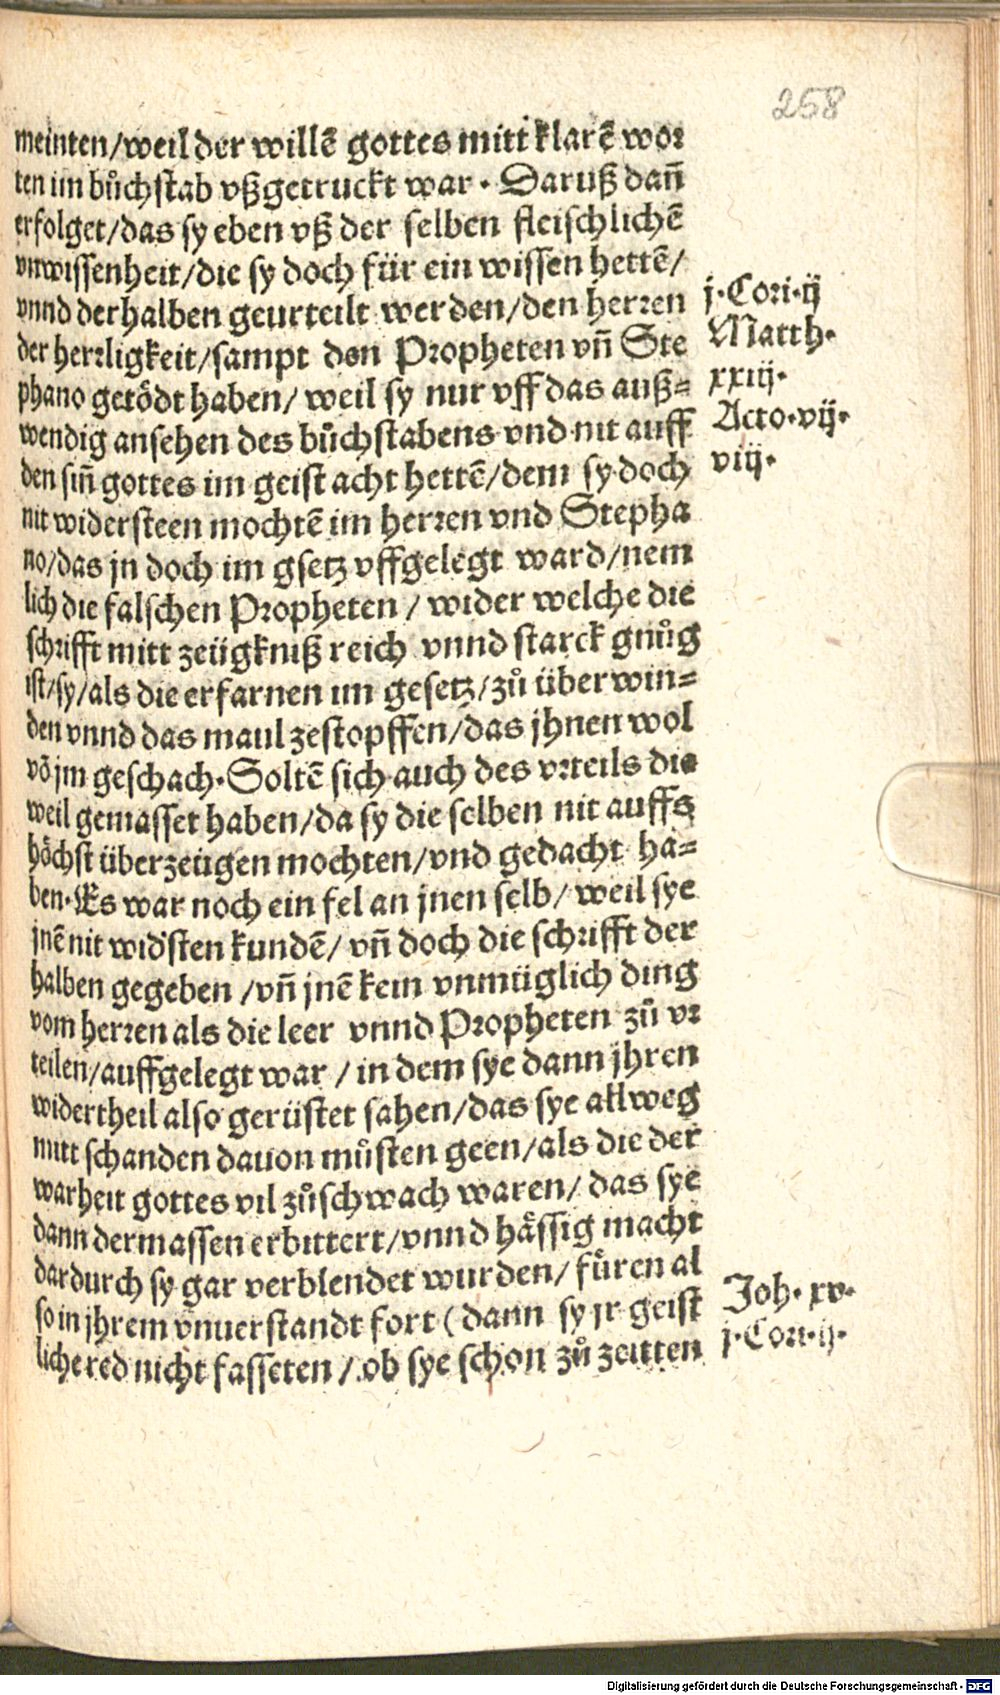 258
meinten/weil der willē gottes mitt klarē wor
ten im bůchstab vßgetruckt war. Daruß dañ
erfolget/das sy eben vß der selben fleischlichē
vnwissenheit/die sy doch für ein wissen hettē/
vnnd derhalben geurteilt werden/den herren
der herrligkeit/sampt den Propheten vñ Ste
phano getödt haben/ weil sy nur vff das auß=
wendig ansehen des bůchstabens vnd nit auff
den siñ gottes im geist acht hettē/dem sy doch
nit widersteen mochtē im herren vnd Stepha
no/das jn doch im gsetz vffgelegt ward/nem
lich die falschen Propheten / wider welche die
schrifft mitt zeügkniß reich vnnd starck gnůg
ist/sy/als die erfarnen im gesetz/zů überwin=
den vnnd das maul zestopffen/das jhnen wol
vō jm geschach. Soltē sich auch des vrteils die
weil gemasset haben/da sy die selben nit auffs
höchst überzeügen mochten/vnd gedacht ha=
ben. Es war noch ein fel an jnen selb/ weil sye
jnē nit widʼsten kundē/ vñ doch die schrifft der
halben gegeben /vñ jnē kein vnmüglich ding
vom herren als die leer vnnd Propheten zů vr
teilen/auffgelegt war / in dem sye dann jhren
widertheil also gerüstet sahen/das sye allweg
mitt schanden dauon můsten geen/als die der
warheit gottes vil zůschwach waren/ das sye
dann dermassen erbittert/vnnd hässig macht
dardurch sy gar verblendet wurden/ fůren al
so in jhrem vnuerstandt fort ( dann sy jr geist
liche red nicht fasseten / ob sye schon zů zeitten
j. Cori. ij
Matth.
xxiij.
Acto. vij.
viij.
Joh. xv.
j. Cori. ij.
Digitalisierung gefördert durch die Deutsche Forschungsgemeinschaft - DFG